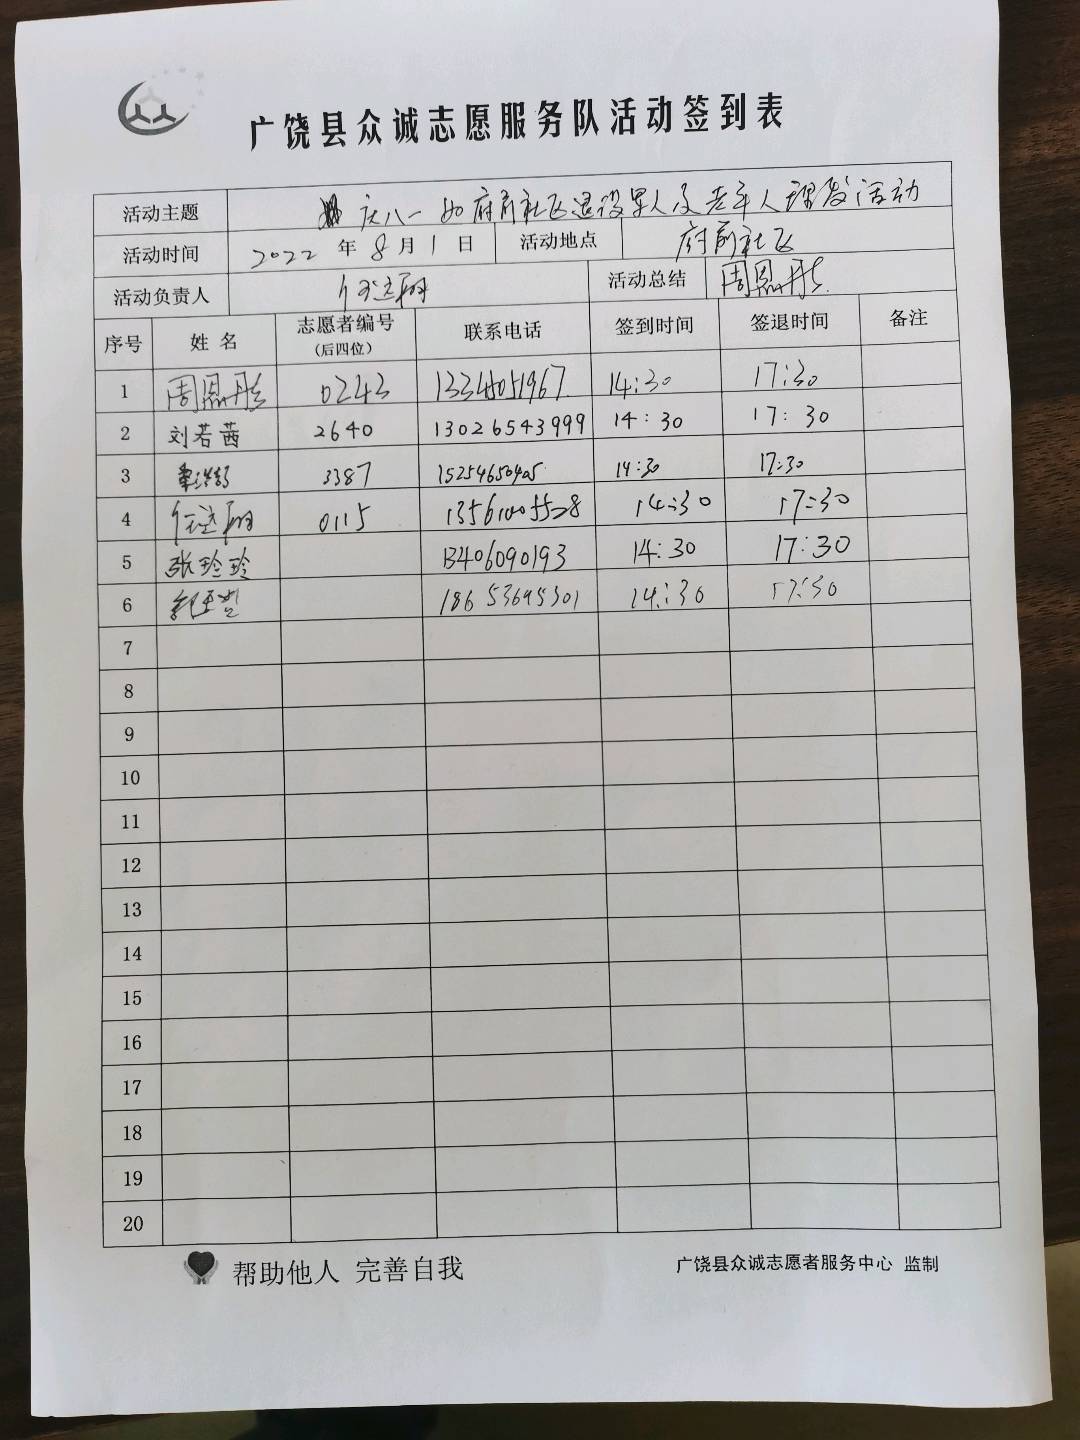 广饶县众诚志愿服务队活动签到表
活动主题 庆八一 府前社区退役军人及老年人理发活动
活动时间 2022 年 8 月 1 日 活动地点 府前社区
活动负责人 活动总结 周恩彤
序号 姓 名 志愿者编号 联系电话 签到时间 签退时间 备注
(后四位)
1 周恩彤 0243 14:30 17:30
2 刘若茜 2640 13026543999 14:30 17:30
3 3387 15254650405 14:30 17:30
4 0115 14:30 17:30
5 张玲玲 13406090193 14:30 17:30
6 18653695301 14:30 17:30
7
8
9
10
11
12
13
14
15
16
17
18
19
20
帮助他人 完善自我 广饶县众诚志愿者服务中心 监制